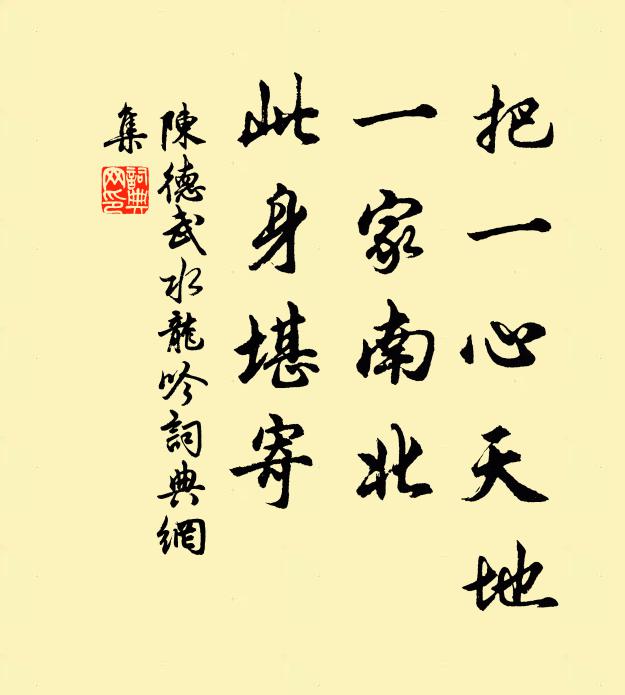 把一心天地
一家南北
此身堪寄
陳德武水龍吟詞典網
集
詞典
网印